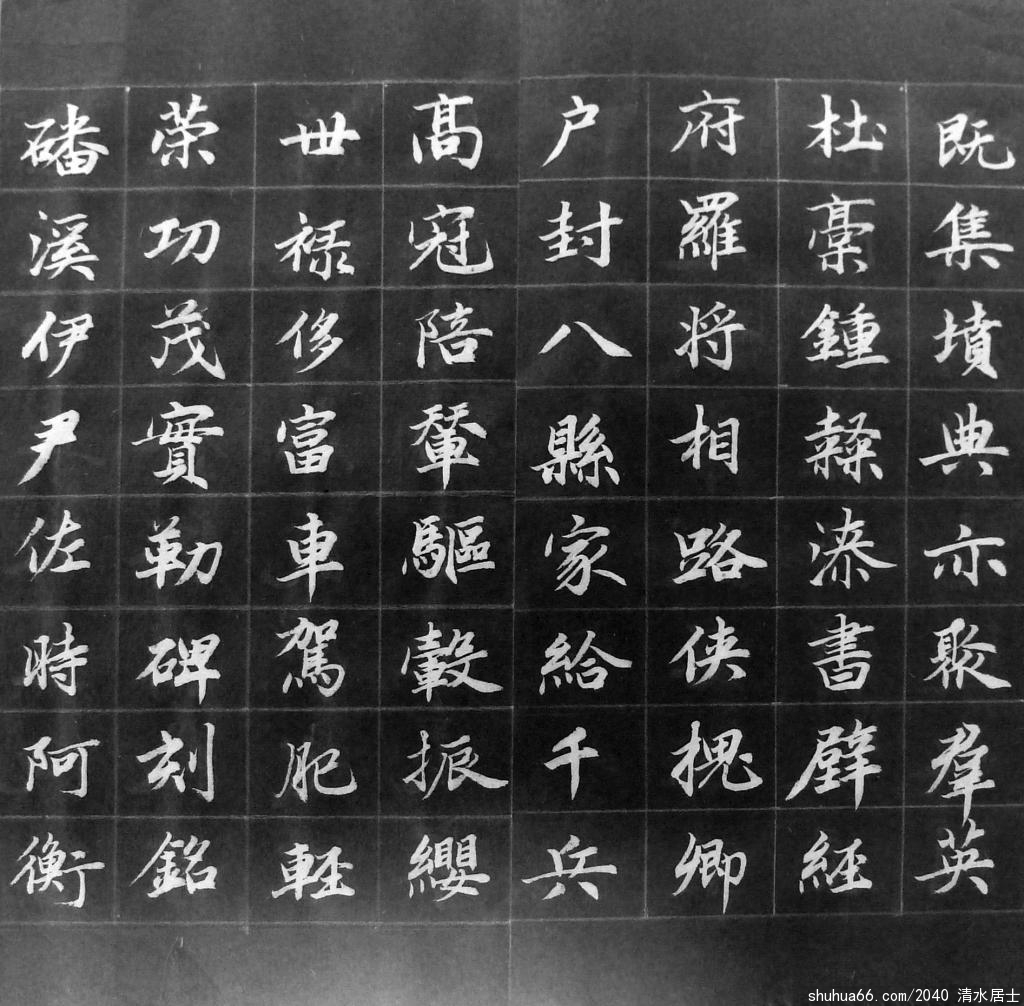 既集墳典亦聚羣英
杜稾鍾隸漆書壁經
府羅将相路侠槐卿
户封八縣家給千兵
髙冠陪輦驅轂振纓
世禄侈富車駕肥輕
策功茂實勒碑刻銘
磻溪伊尹佐時阿衡
shuhua66.com/2040 清水居士